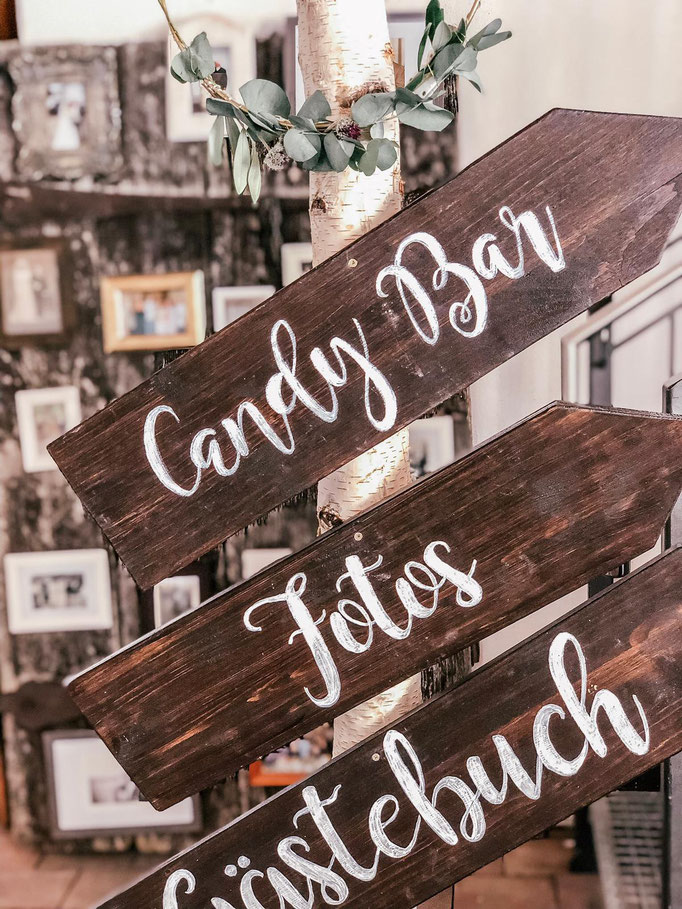 Candy Bar
Fotos
Gästebuch